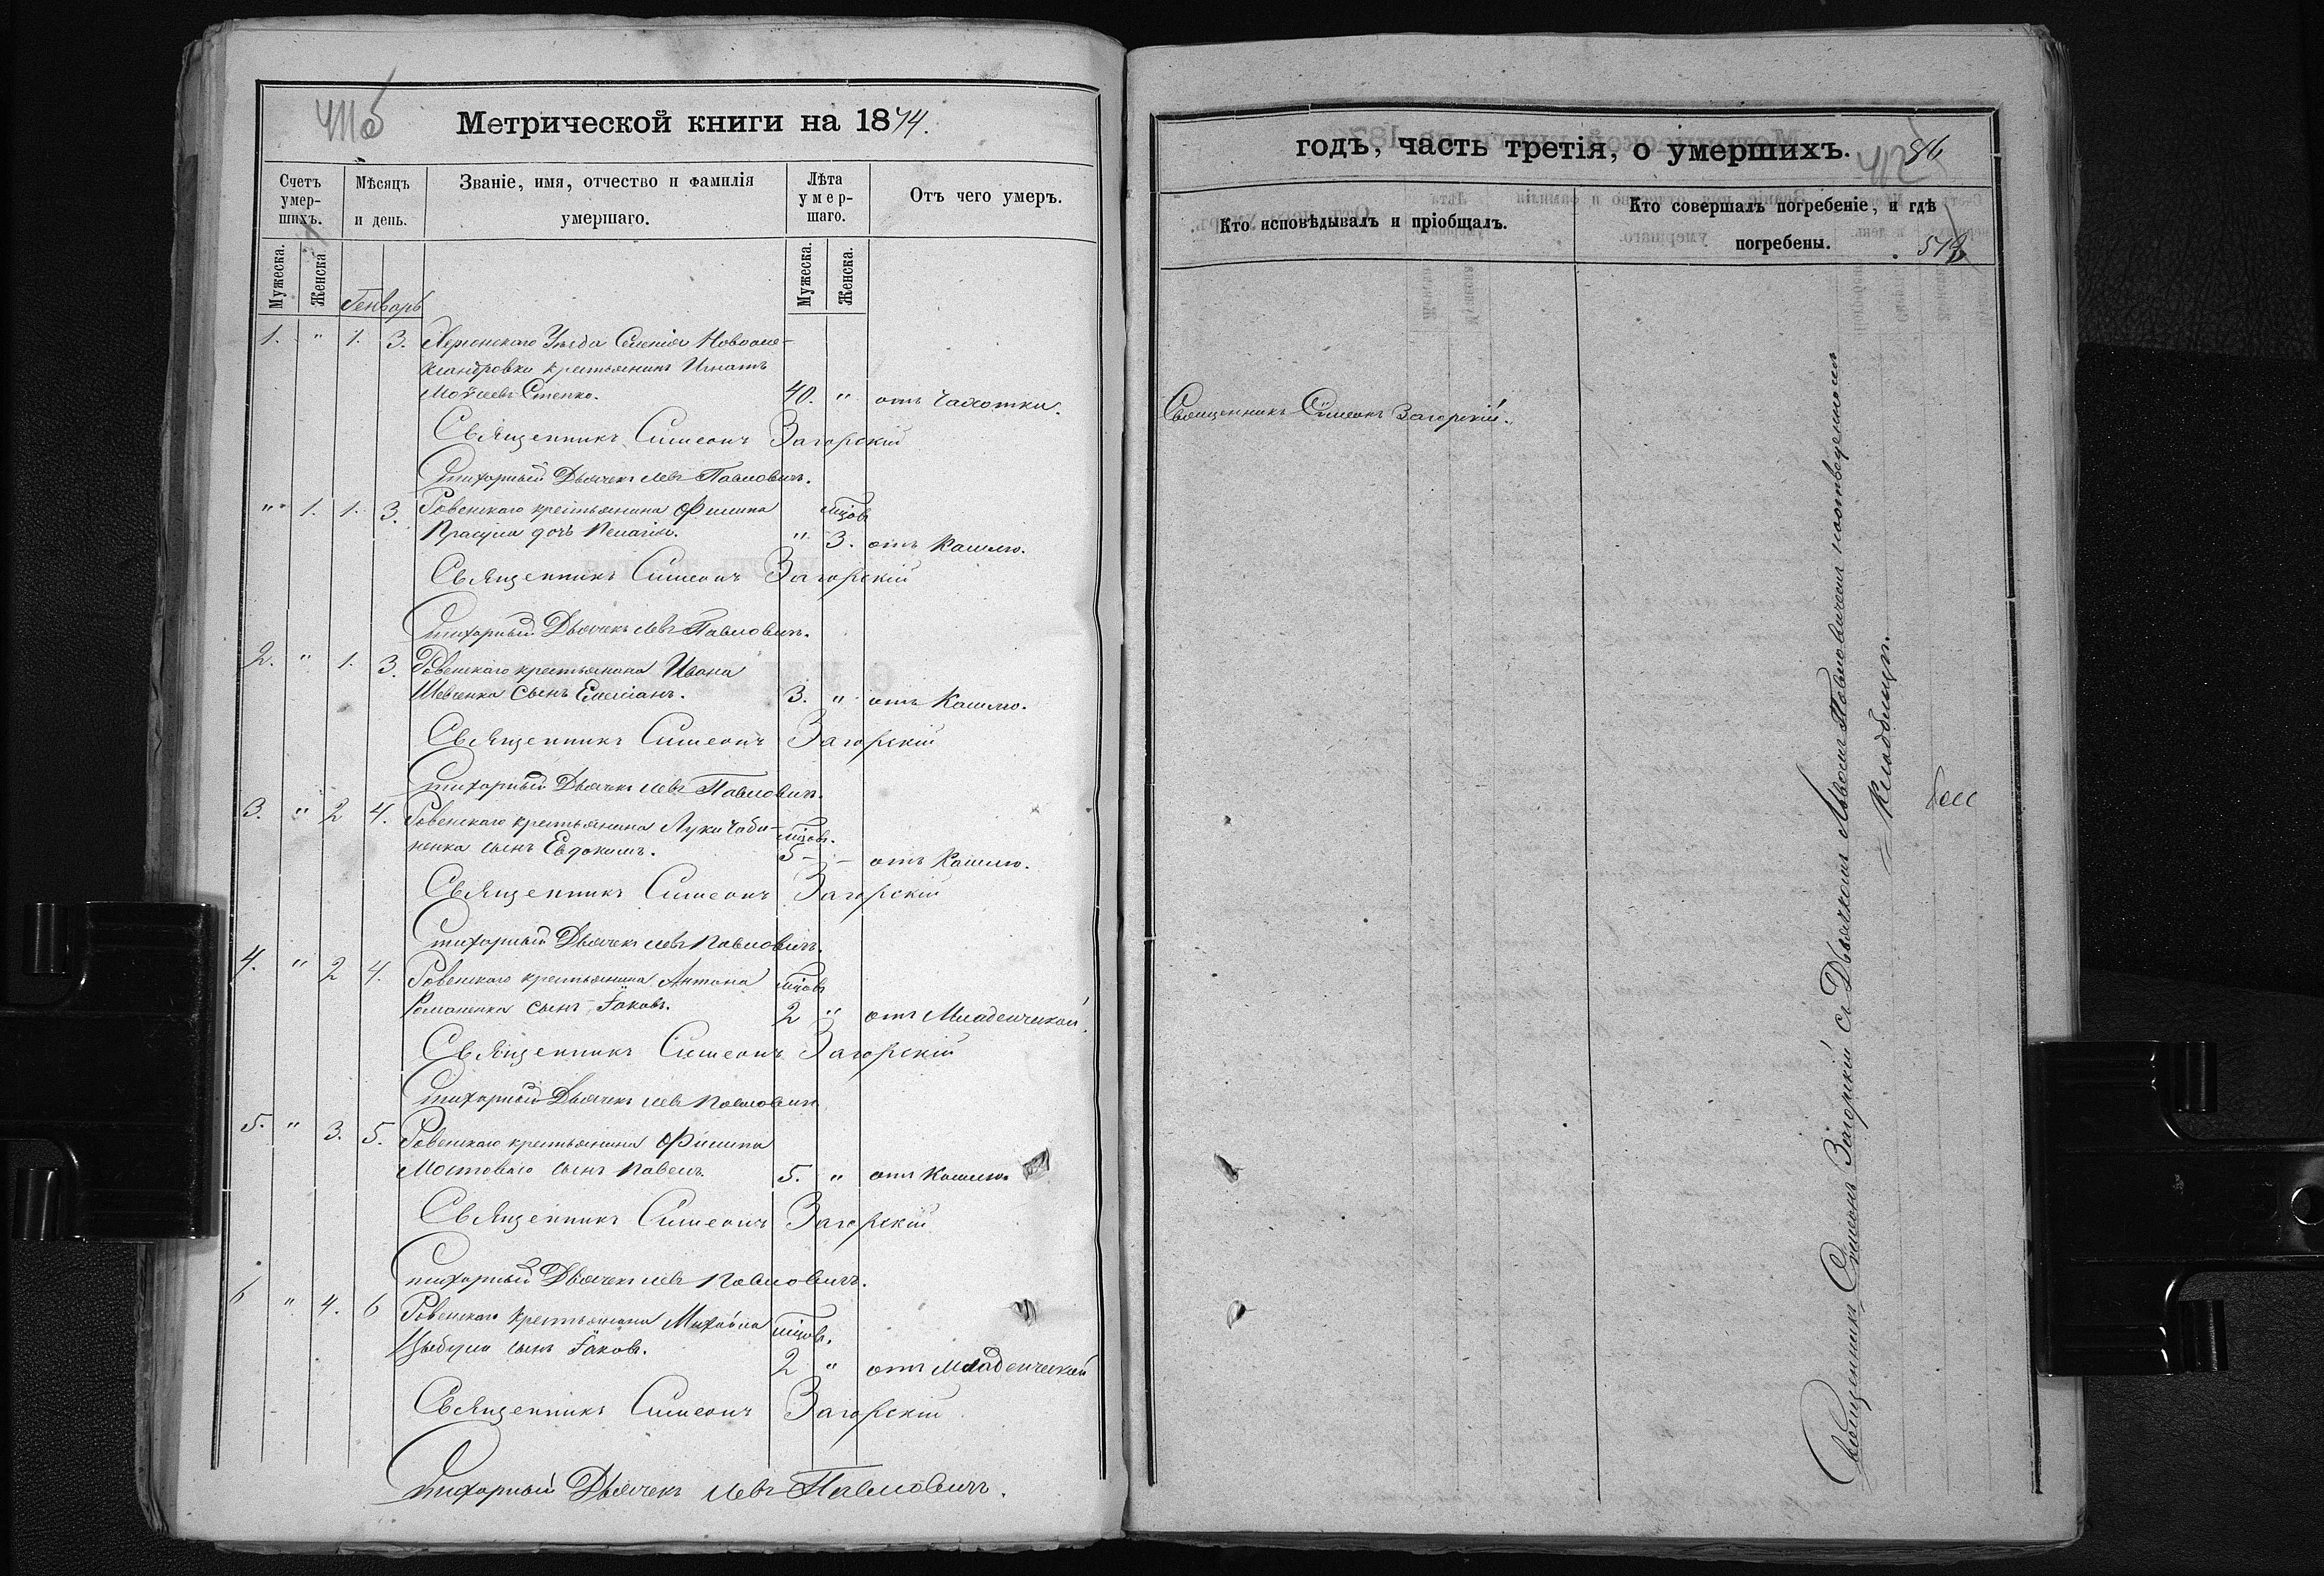 Метрической книги на 1874.
Счетъ умер-шихъ.
Мѣсяцъ и день.
Званіе, имя, отчество и фамилія умершаго.
Лѣта умер-шаго.
Отъ чего умеръ.
Мужеска.
Женска
Генварь
Мужеска.
Женска.
1. " 1. 3. Херсонскаго Уѣзда Селенія Новоале-
ксандровки крестьянинъ Игнатъ
Моѵсеевъ Степко. 40. " отъ Чахотки.
Священникъ Симеонъ Загорскій
Стихарный Дьячекъ Левъ Павловичъ.
" 1. 1. 3. Ровенскаго крестьянина Филипа мцов
Прасула дочь Пелагія. " 3. отъ Кашлю.
Священникъ Симеонъ Загорскій
Стихарный Дьячекъ Левъ Павловичъ.
2. " 1. 3. Ровенскаго крестьянина Ивана
Шевченка сынъ Емеліанъ. 3. " отъ Кашлю.
Священникъ Симеонъ Загорскій
Стихарный Дьячекъ Левъ Павловичъ.
3. " 2 4. Ровенскаго крестьянина Луки Чаба-
ненка сынъ Евдокимъ. мцов. 5 - - отъ Кашлю.
Священникъ Симеонъ Загорскій
Стихарный Дьячекъ Левъ Павловичъ.
4. " 2 4. Ровенскаго крестьянина Антона мцов
Романенка сынъ Іаковъ. 2 " отъ Младенческой.
Священникъ Симеонъ Загорскій
Стихарный Дьячекъ Левъ Павловичъ
5. " 3. 5. Ровенскаго крестьянина Филипа
Мостоваго сынъ Павелъ. 5. " отъ Кашлю.
Священникъ Симеонъ Загорскій
Стихарный Дьячекъ Левъ Павловичъ.
6 " 4. 6 Ровенскаго крестьянина Михаила мцов.
Цыбули сынъ Іаковъ. 2 " отъ Младенческой
Священникъ Симеонъ Загорскій
Стихарный Дьячекъ Левъ Павловичъ.
годъ, часть третія, о умершихъ.
Кто исповѣдывалъ и пріобщалъ.
Кто совершалъ погребеніе, и гдѣ погребены.
Священникъ Сѵмеонъ Загорскій.
Священникъ Сѵмеонъ Загорскій съ Дьячкомъ Львомъ Павловичемъ на отведенномъ
Кладбищѣ.